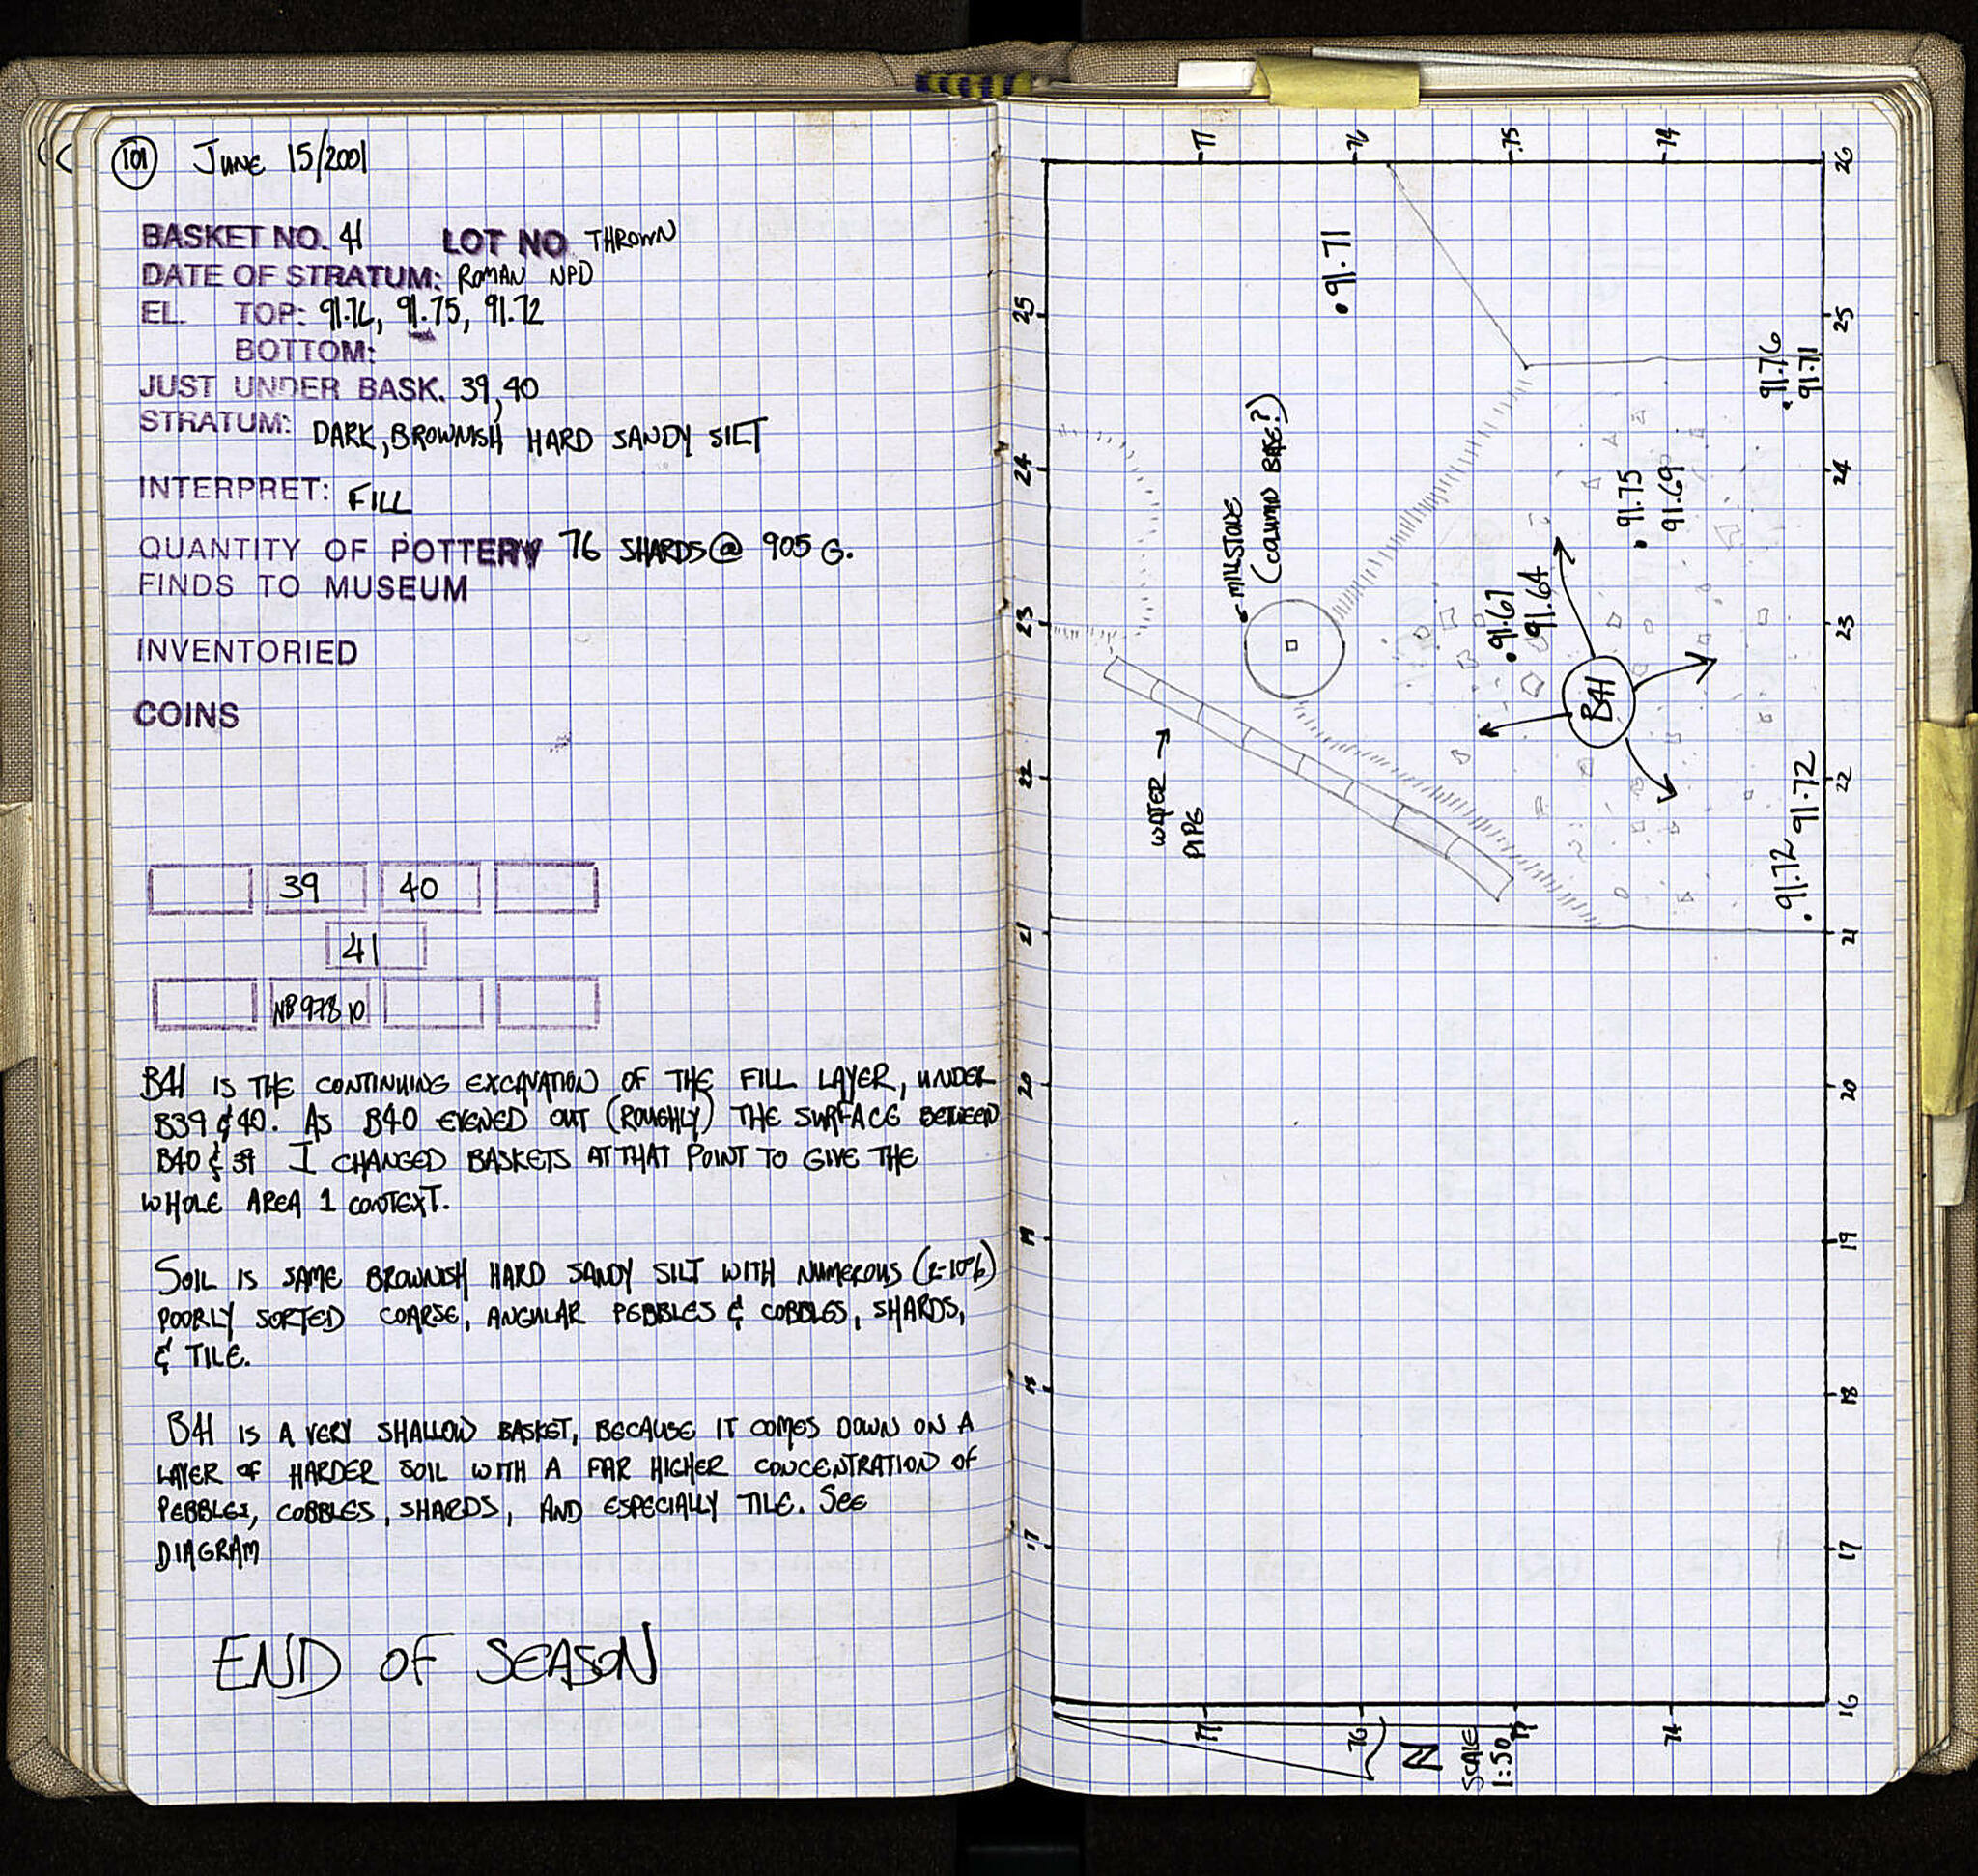 101 JUNE 15/2001
BASKET NO. 41 LOT NO. THROWN
DATE OF STRATUM: ROMAN NPD
EL. TOP: 91.76, 91.75, 91.72
BOTTOM:
JUST UNDER BASK. 39, 40
STRATUM: DARK, BROWNISH HARD SANDY SILT
INTERPRET: FILL
QUANTITY OF POTTERY 76 SHARDS @ 905 G.
FINDS TO MUSEUM
INVENTORIED
COINS
39 40
41
NB 978 10
B41 IS THE CONTINUING EXCAVATION OF THE FILL LAYER, UNDER
B39 & 40. AS B40 EVENED OUT (ROUGHLY) THE SURFACE BETWEEN
B40 & 39 I CHANGED BASKETS AT THAT POINT TO GIVE THE
WHOLE AREA 1 CONTEXT.
SOIL IS SAME BROWNISH HARD SANDY SILT WITH NUMEROUS
POORLY SORTED COARSE, ANGULAR PEBBLES & COBBLES, SHARDS,
& TILE.
B41 IS A VERY SHALLOW BASKET, BECAUSE IT COMES DOWN ON A
LAYER OF HARDER SOIL WITH A FAR HIGHER CONCENTRATION OF
PEBBLES, COBBLES, SHARDS, AND ESPECIALLY TILE. SEE
DIAGRAM
END OF SEASON
77 76 75 74
26
25 25
24 24
23 23
22 22
21 21
20 20
19 19
18 18
17 17
16
77 76 75 74
.91.71
.91.76
91.71
MILLSTONE
(COLUMN BASE?)
.91.75
91.69
.91.67
91.64
B41
WATER
PIPE
.91.72 91.72
N
SCALE
1:50